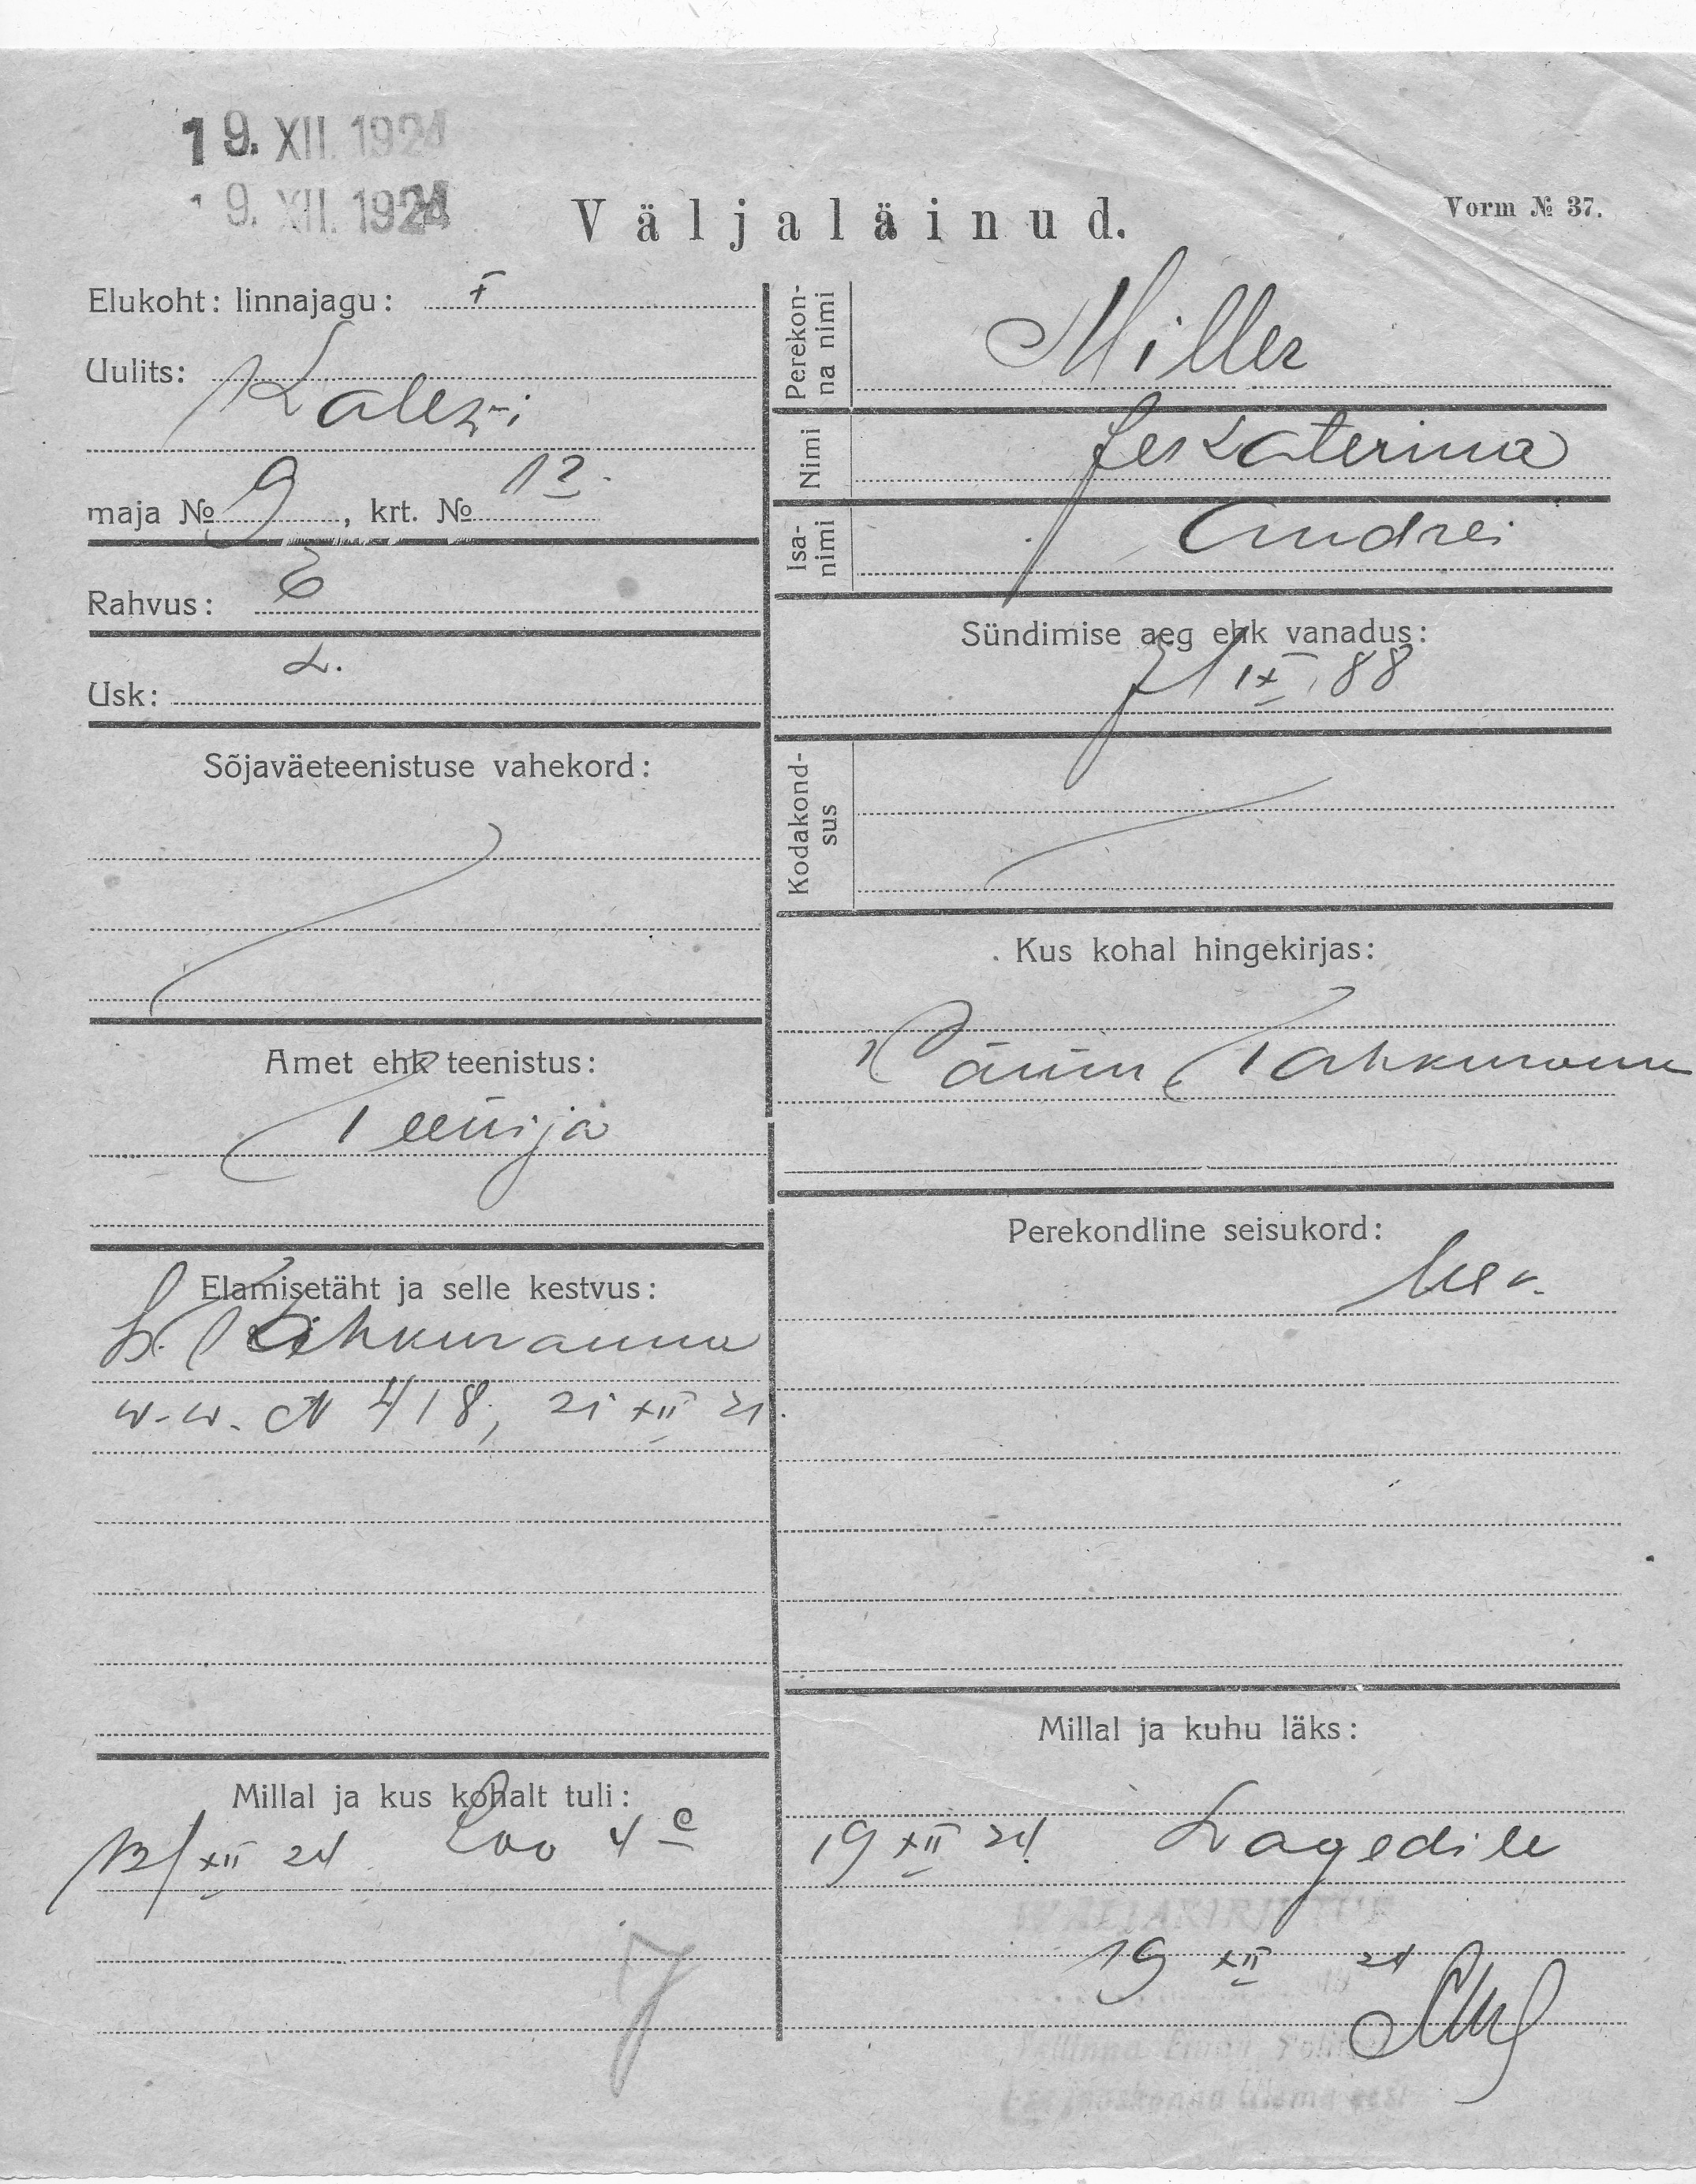 19. XII. 1924
19. XII. 1924
Väljaläinud.
Vorm № 37.
Elukoht: linnajagu: I
Uulits:
maja № 9, krt. № 12.
Rahvus: E
Usk: L.
Sõjaväeteenistuse vahekord:
Amet ehk teenistus:
Teenija
Elamisetäht ja selle kestvus:
Tahkuranna
w.-w. N 418, 21 XII 21.
Millal ja kus kohalt tuli:
13/XII 24 Loo 4
Perekonna nimi
Miller
Nimi
Jekaterina
Isanimi
Andrei
Sündimise aeg ehk vanadus:
IX 88
Kodakondsus
Kus kohal hingekirjas:
Tahkuranna
Perekondline seisukord:
Millal ja kuhu läks:
19 XII 24. Lagedile
19 XII 24